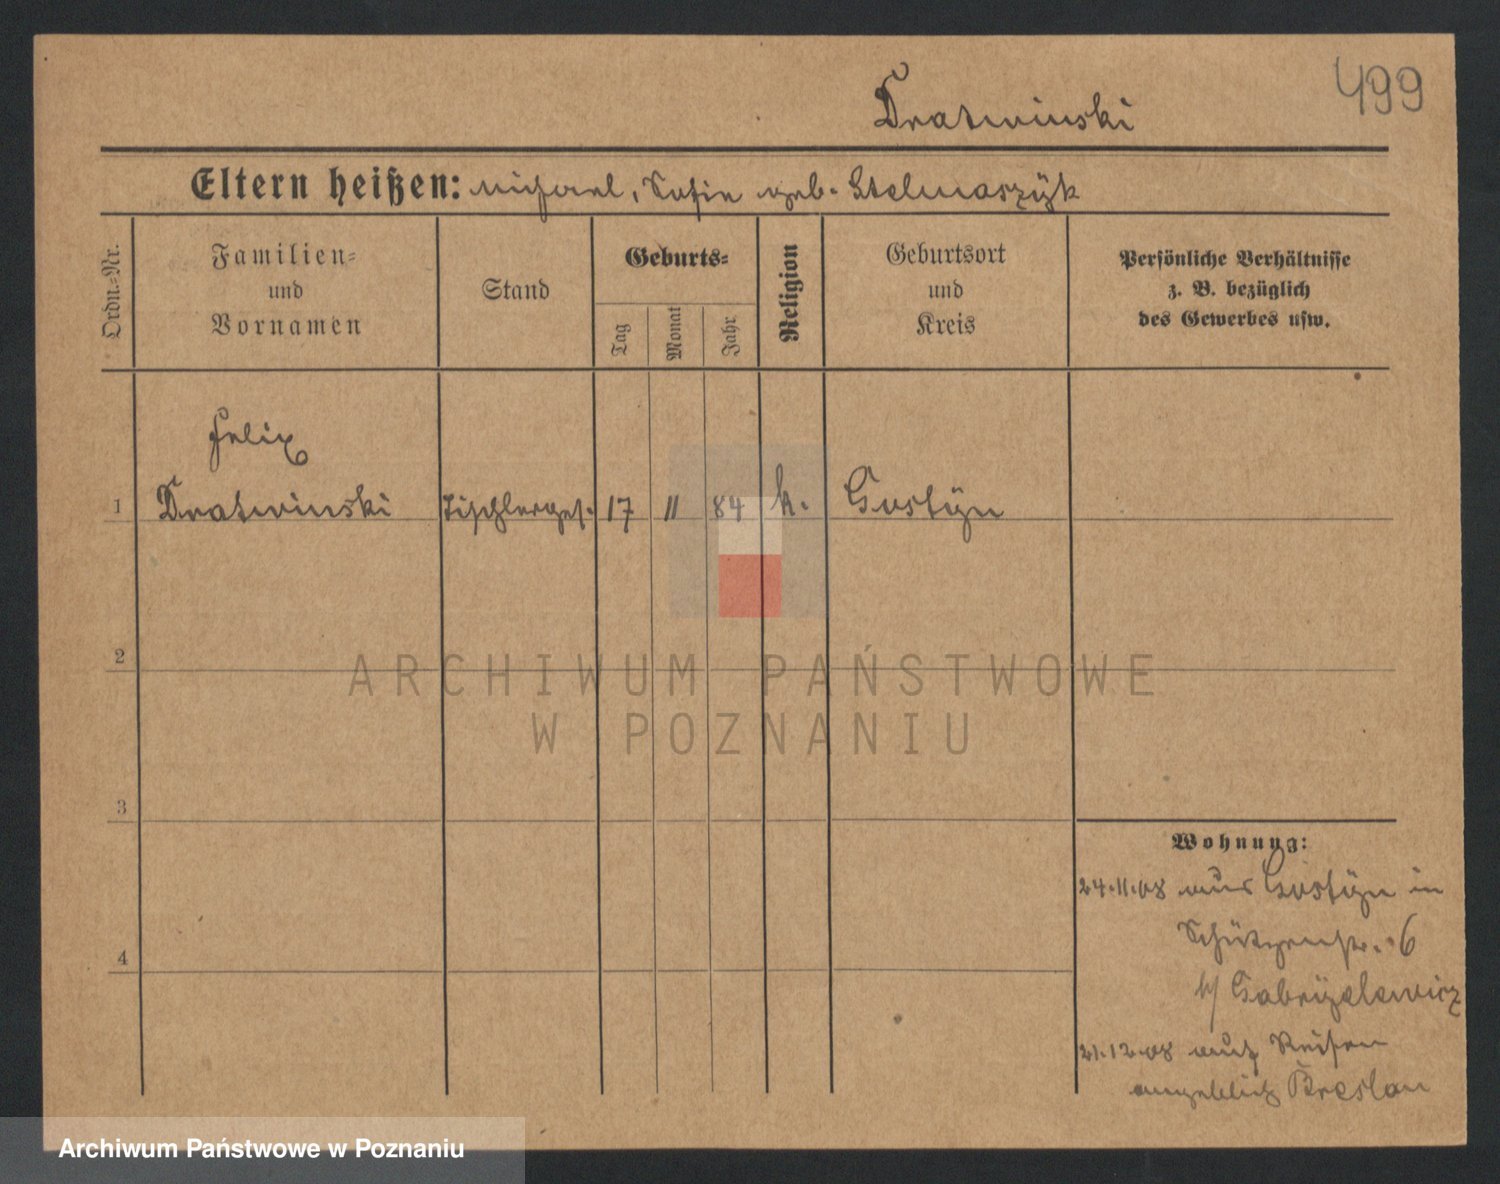 499
Dratwinski
Eltern heißen: Michael, Sofie geb. Stelmaszÿk
Ordn.-Nr.
Familien-
und
Vornamen
Stand
Geburts-
Tag
Monat
Jahr
Religion
Geburtsort
und
Kreis
Persönliche Verhältnisse
z. B. bezüglich
des Gewerbes usw.
Felix
1 Dratwinski Tischlerges. 17 11 84 k. Gostÿn
2
ARCHIWUM PAŃSTWOWE
W POZNANIU
3
Wohnung:
24.11.08 aus Gostÿn in
Schützenstr. 6
b/ Gabrÿelewicz
4
21.12.08 auf Reisen
angeblich Breslau
Archiwum Państwowe w Poznaniu